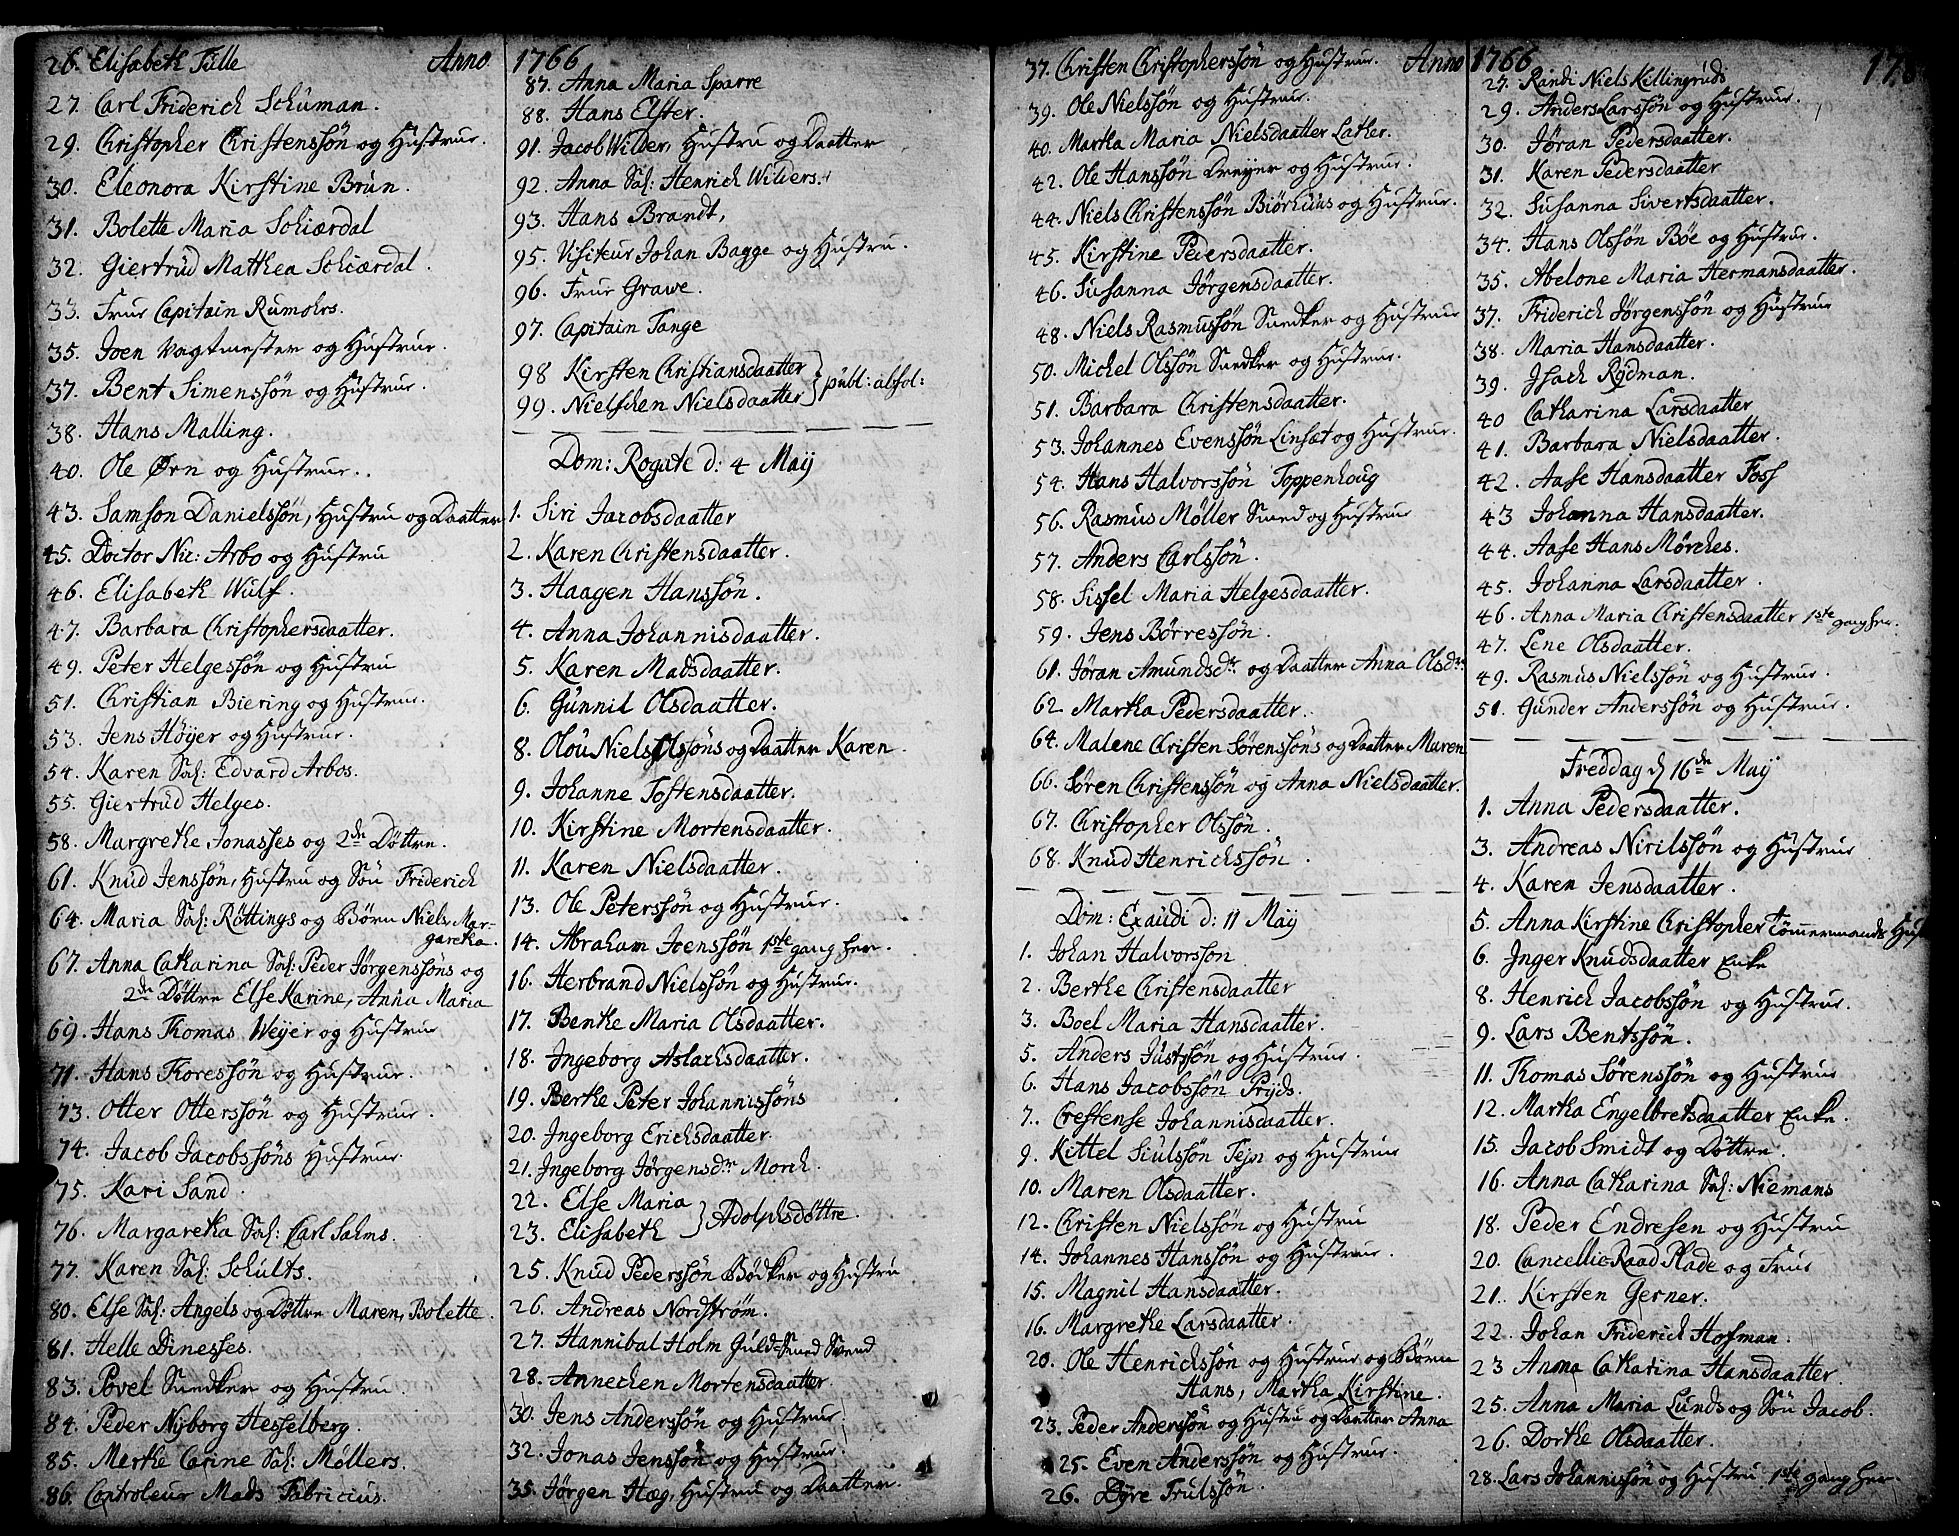 26. Elisabeth Tülle Anno
27. Carl Friderich Schüman.
29. Christopher Christenssön og Hüstrue.
30. Eleonora Kirstine Brün.
31. Bolette Maria Schiærdal
32. Giertrüd Matthea Schiærdal.
33. Frue Capitain Rumohrs.
35. Joen Vagtmester og Hüstrue.
37. Bent Simenssön og Hüstrue.
38. Hans Malling.
40. Ole Ørn og Hüstrue.
43. Samson Danielssön, Hüstru og Daatter
45. Doctor Nic: Arbo og Hüstru
46. Elisabeth Wülf.
47. Barbara Christophersdaatter.
49. Peter Helgessön og Hüstru
51. Christian Biering og Hüstrue.
53. Jens Höyer og Hüstrue.
54. Karen Sal: Edvard Arbos.
55. Giertrüd Helges.
58. Margrethe Jonasses og 2de Döttre.
61. Knüd Jenssön, Hüstru og Sön Friderich
64. Maria Sal: Röttings og Börn Niels, Mar-
garetha.
67. Anna Catharina Sal: Peder Jörgenssöns og
2de Döttre Else Karine, Anna Maria
69. Hans Thomas Weyer og Hüstrue
71. Hans Thoressön og Hüstrue.
73. Otter Otterssön og Hüstrue.
74. Jacob Jacobssöns Hüstrue.
75. Kari Sand.
76. Margaretha Sal: Carl Sahms.
77. Karen Sal: Schults.
80. Else Sal: Angels og Döttre Maren, Bolette.
81. Helle Dinesses.
83. Povel Snedker og Hüstru
84. Peder Nyborg Hesselberg.
85. Merthe Carine Sal: Möllers.
86. Controleur Mads Fabricius.
1766
87. Anna Maria Sparre
88. Hans Elster.
91. Jacob Wilder, Hüstru og Daatter
92. Anna Sal: Henrich Wilders.
93. Hans Brandt,
95. Visiteur Johan Bagge og Hüstru.
96. Frue Grawe.
97. Capitain Tange
98 Kirsten Christiansdaatter
99. Nielschen Nielsdaatter } publ: absol:
Dom: Rogate d: 4 Maÿ
1. Siri Jacobsdaatter
2. Karen Christensdaatter.
3. Haagen Hanssön.
4. Anna Johannisdaatter.
5. Karen Madsdaatter.
6. Günnil Olsdaatter.
8. Olöu Niels Olssöns og Daatter Karen.
9. Johanne Tostensdaatter.
10. Kirstine Mortensdaatter.
11. Karen Nielsdaatter.
13. Ole Peterssön og Hüstrue.
14. Abraham Joenssön 1ste gang her.
16. Herbrand Nielssön og Hüstrue.
17. Benthe Maria Olsdaatter.
18. Ingeborg Aslachsdaatter.
19. Berthe Peter Johannissöns
20. Ingeborg Erichsdaatter.
21. Ingeborg Jörgensdr Morch.
22. Else Maria
23. Elisabeth } Adolphsdöttre.
25. Knüd Pederssön Bödker og Hüstru
26. Andreas Nordström.
27. Hannibal Holm Güld-Smed Svend
28. Annechen Mortensdaatter
30. Jens Anderssön og Hüstrue.
32. Jonas Jenssön og Hüstrue.
35. Jörgen Hæg, Hüstru og Daatter.
37. Christen Christopherssön og Hüstrue. Anno
39. Ole Nielssön og Hüstrue.
40. Martha Maria Nielsdaatter Lather.
42. Ole Hanssön Dreyer og Hüstrue.
44. Niels Christenssön Biörhüus og Hüstrue.
45. Kirstine Pedersdaatter.
46. Susanna Jörgensdaatter.
48. Niels Rasmussön Snedker og Hüstrue
50. Michel Olssön Snedker og Hüstrue.
51. Barbara Christensdaatter.
53. Johannes Evenssön Linsæt og Hüstrue.
54. Hans Halvorssön Toppenhoug
56. Rasmus Möller Smed og Hüstrue
57. Anders Carlssön.
58. Sissel Maria Helgesdaatter.
59. Jens Börressön.
61. Jöran Amundsdr og Daatter Anna Olsdr
62 Martha Pedersdaatter.
64. Malene Christen Sörenssöns og Daatter Maren
66. Sören Christenssön og Anna Nielsdaatter.
67. Christopher Olssön.
68. Knüd Henrichssön.
Dom: Exaudi d: 11 Maÿ
1. Johan Halvorssön
2. Berthe Christensdaatter
3. Boel Maria Hansdaatter.
5. Anders Jüstsön og Hüstrue.
6. Hans Jacobssön Prÿds.
7. Crestense Johannisdaatter.
9. Kittel Siulssön Tejn og Hüstrue
10. Maren Olsdaatter.
12. Christen Nielssön og Hüstru
14. Johannes Hanssön og Hüstrue.
15. Magnil Hansdaatter.
16. Margrethe Larsdaatter.
20. Ole Henrichssön og Hüstrue og Börn
Hans, Martha Kirstine.
23. Peder Anderssön og Hüstru og Daatter Anna
25. Even Anderssön og Hüstrue.
26. Dÿre Trulssön.
1766 17
27. Randi Niels Killingrüds
29. Anders Larssön og Hüstrue.
30. Jöran Pedersdaatter.
31. Karen Pedersdaatter
32. Susanna Sivertsdaatter.
34. Hans Olssön Böe og Hüstrue.
35. Abelone Maria Hermansdaatter.
37. Friderich Jörgenssön og Hüstrue
38. Maria Hansdaatter.
39. Isach Rÿdman.
40 Catharina Larsdaatter
41. Barbara Nielsdaatter.
42. Aase Hansdaatter Foss
43 Johanna Hansdaatter.
44. Aase Hans Mörches.
45. Johanna Larsdaatter.
46. Anna Maria Christensdaatter 1ste gang her.
47. Lene Olsdaatter.
49. Rasmus Nielssön og Hüstrue.
51. Gunder Anderssön og Hüstrue.
Freddag d 16de Maÿ
1. Anna Pedersdaatter.
3. Andreas Nirilssön og Hüstrue
4. Karen Jensdaatter.
5. Anna Kirstine Christopher Tömmermands
6. Inger Knudsdaatter Enke
8. Henrich Jacobssön og Hüstrue.
9. Lars Bentssön.
11. Thomas Sörenssön og Hüstrue
12. Martha Engelbretsdaatter Enke.
15. Jacob Smidt og Döttre.
16. Anna Catharina Sal: Niemans
18. Peder Endresen og Hüstru
20. Cancellie-Raad Plade og Frue
21. Kirsten Gerner.
22. Johan Friderich Hofman.
23 Anna Catharina Hansdaatter.
25. Anna Maria Lunds og Sön Jacob.
26. Dorthe Olsdaatter.
28. Lars Johannissön og Hüstru 1ste gang her.